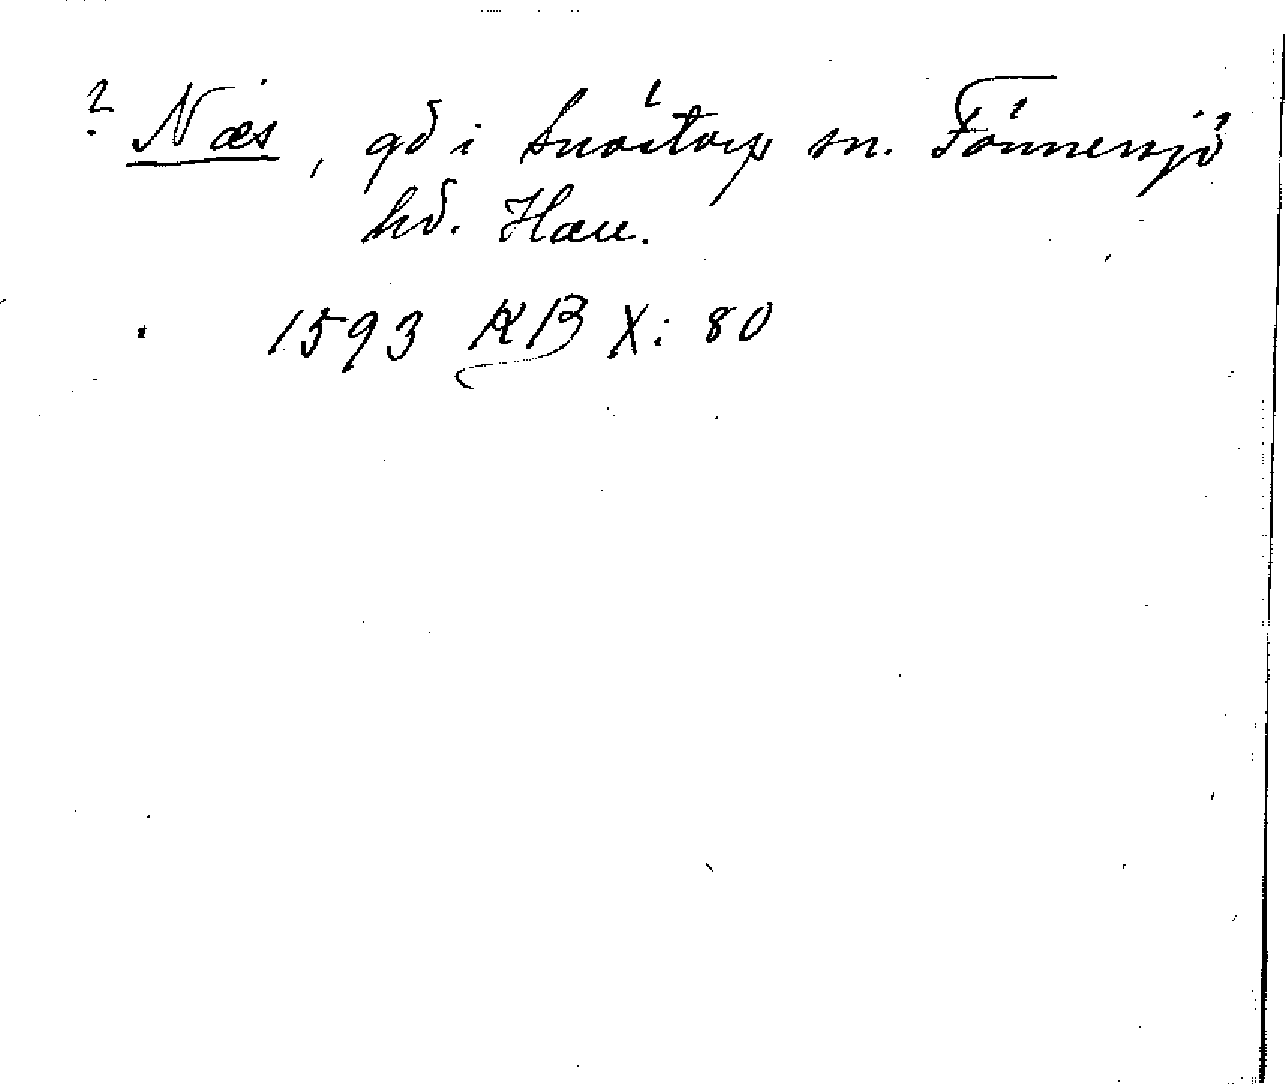 ? Næs, gd i Snöstorp sn. Tönnersjö
hd. Hall.
1593 KB X: 80